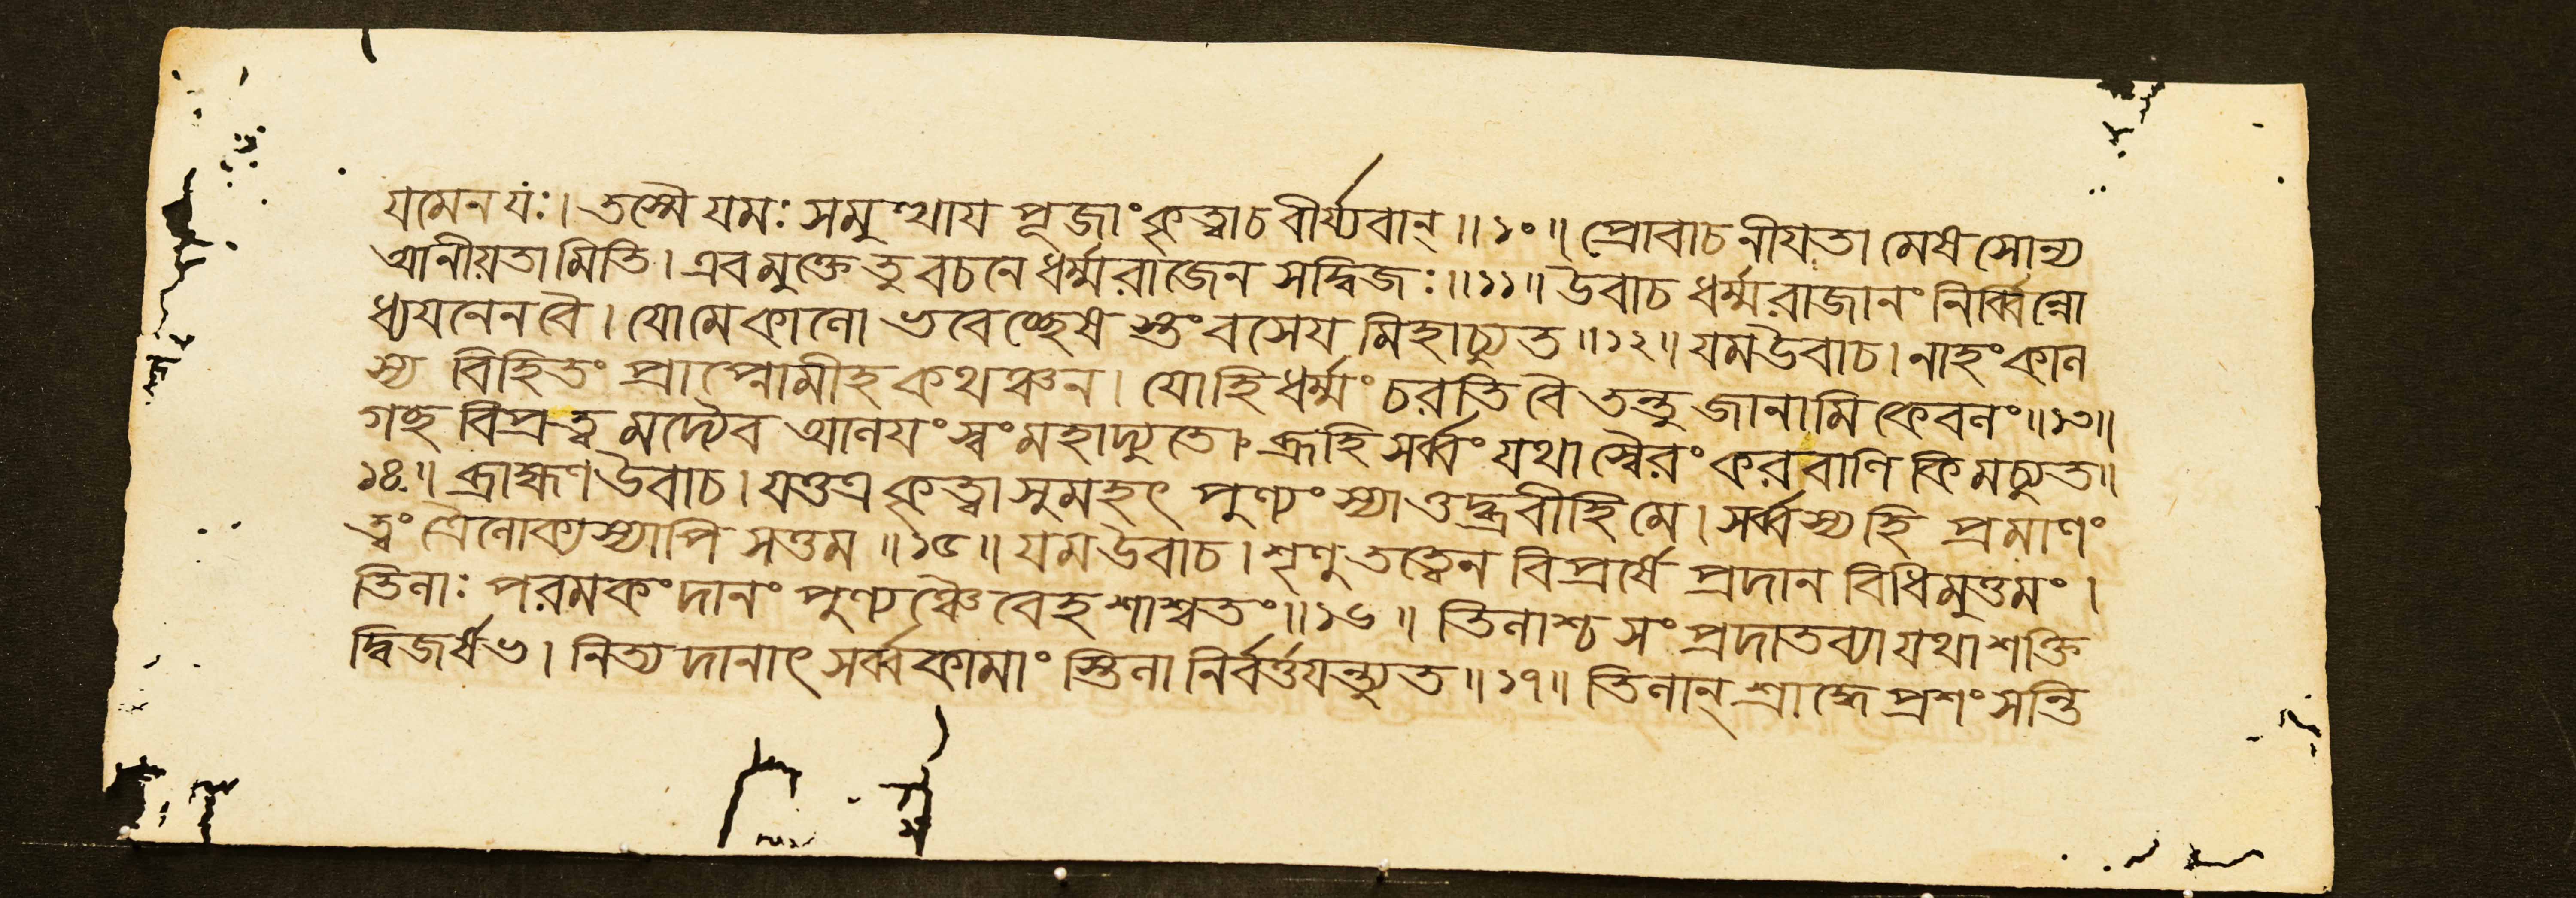 যমেন যঃ। তস্মৈ যমঃ সমুত্থায পূজাং কৃত্বা চ বীর্য্যবান্॥১০॥ প্রোবাচ নীযতা মেষ সোন্য
আনীয়তা মিতি। এবমুক্তে তু বচনে ধর্ম্মরাজেন স দ্বিজঃ॥১১॥ উবাচ ধর্ম্মরাজানং নির্ব্বিন্নো
ধ্যযনেন বৈ। যো মে কানো ভবেচ্ছেষ স্তং বসেয মিহাচ্যুত॥১২॥ যম উবাচ। নাহং কান
স্য বিহিতং প্রাপ্নোমীহ কথঞ্চন। যো হি ধর্ম্মং চরতি বৈ তন্তু জানামি কেবনং॥১৩॥
গচ্ছ বিপ্র ত্ব মদ্যৈব আনযং স্বং মহাদ্যুতে। ব্রূহি সর্ব্বং যথা স্বৈরং করবাণি কিমচ্যুত॥
১৪॥ ব্রাহ্মণ উবাচ। যত্তত্র কৃত্বা সুমহৎ পুণ্যং স্যাত্তদ্ব্রবীহি মে। সর্ব্বস্য হি প্রমাণং
ত্বং ত্রৈনোক্যস্যাপি সত্তম॥১৫॥ যম উবাচ। শৃণু তত্ত্বেন বিপ্রর্ষে প্রদান বিধিমুত্তমং।
তিনাঃ পরমকং দানং পুণ্যঞ্চৈবেহ শাশ্বতং॥১৬॥ তিনাশ্চ সংপ্রদাতব্যা যথাশক্তি
দ্বিজর্ষভ। নিত্য দানাৎ সর্ব্বকামাং স্তিনা নির্বর্ত্তযন্ত্যুত॥১৭॥ তিনান্ শ্রাদ্ধে প্রশংসন্তি